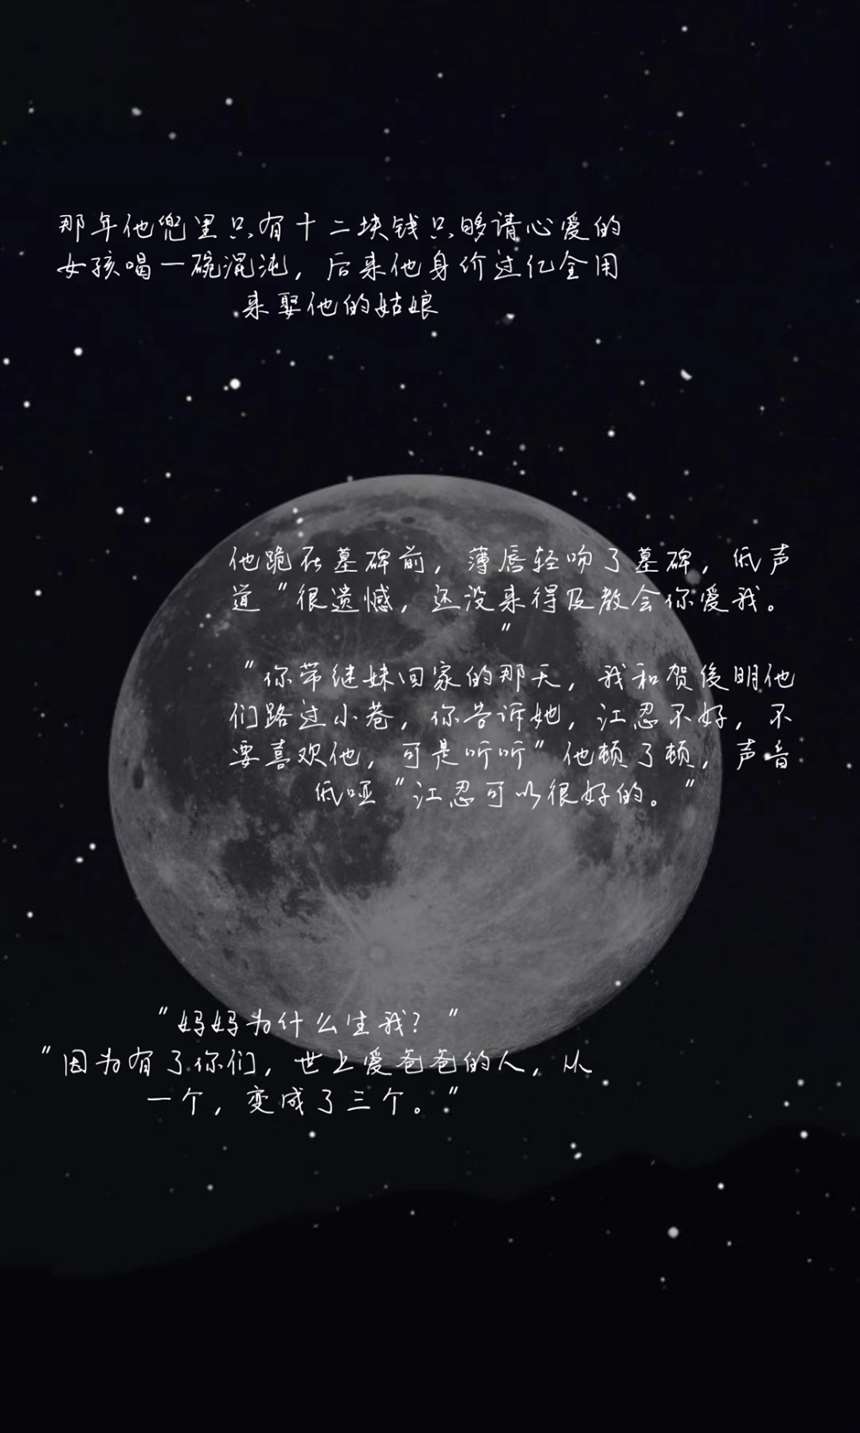 那年他兜里只有十二块钱只够请心爱的
女孩喝一碗混沌，后来他身价过亿全用
来娶他的姑娘
他跪在墓碑前，薄唇轻吻了墓碑，低声
道“很遗憾，还没来得及教会你爱我。
”
“你带继妹回家的那天，我和贺俊明他
们路过小巷，你告诉她，江忍不好，不
要喜欢他，可是听听”他顿了顿，声音
低哑“江忍可以很好的。”
“妈妈为什么生我？”
“因为有了你们，世上爱爸爸的人，从
一个，变成了三个。”